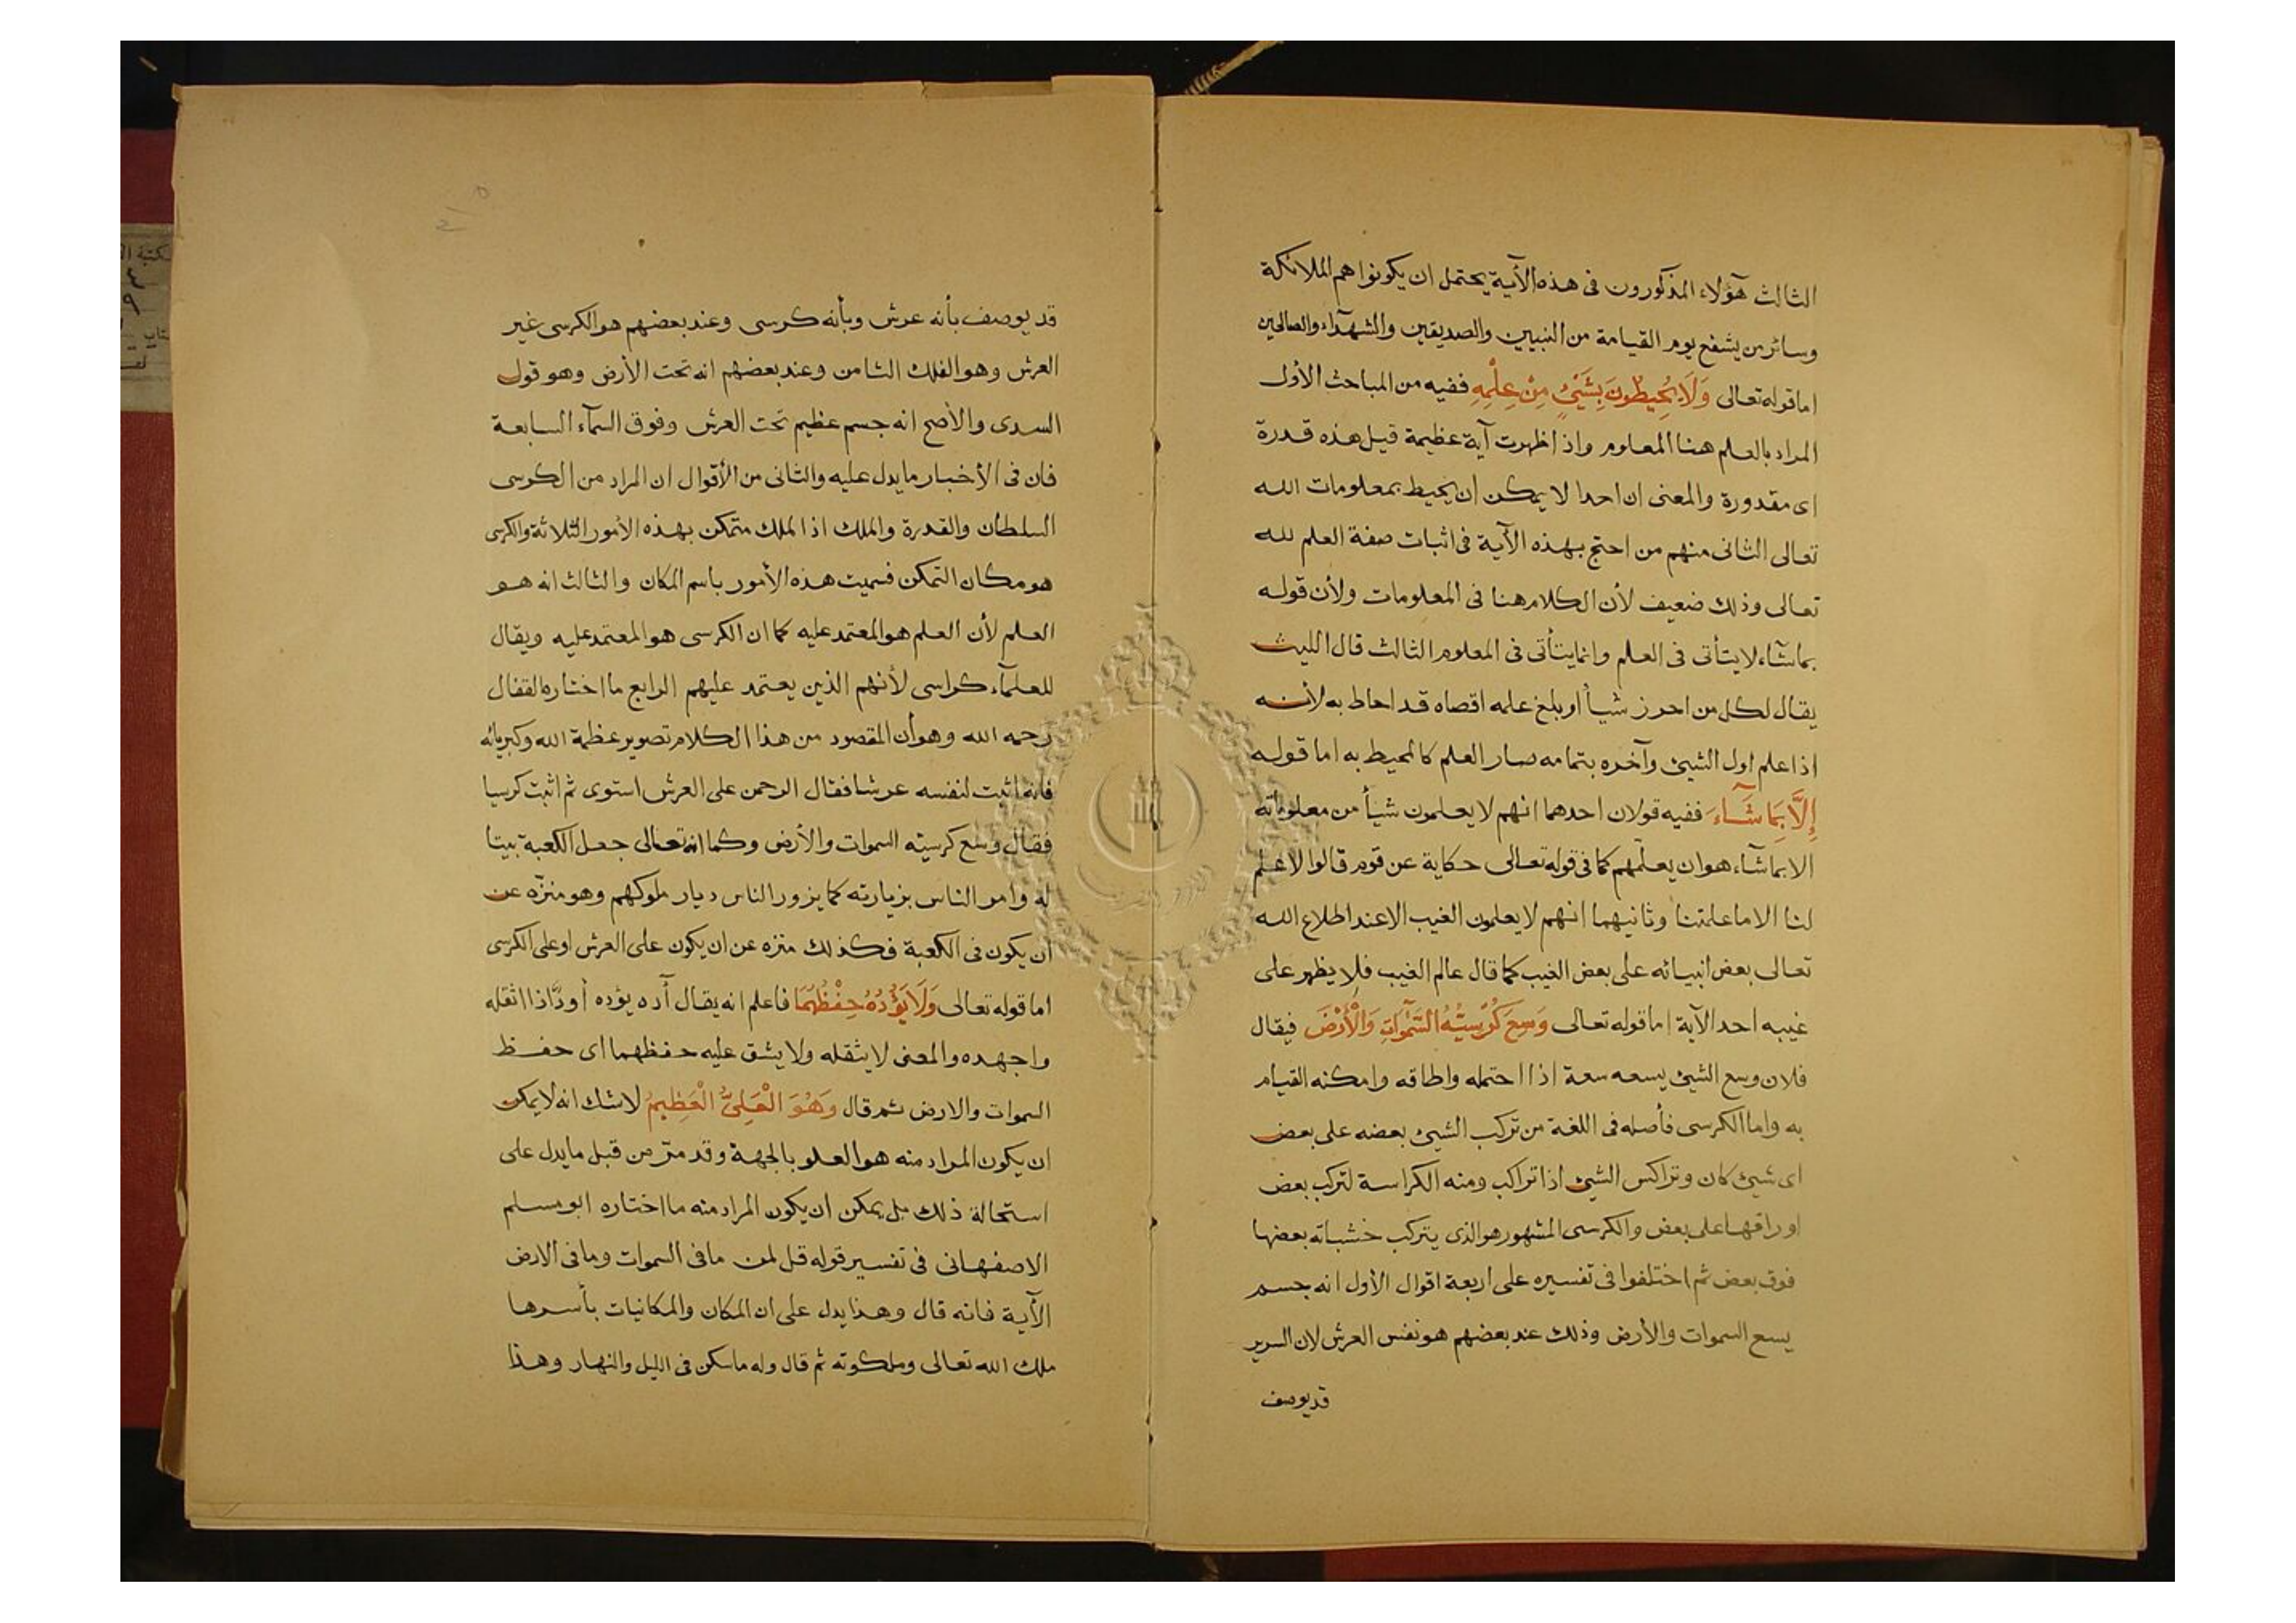 الثالث هؤلاء المذكورون فى هذه الآية يحتمل ان يكونوا هم الملائكة
وسائر من يشفع يوم القيامة من النبيين والصديقين والشهدآء والصالحين
اما قوله تعالى وَلَا يُحِيطُونَ بِشَيْئٍ مِنْ عِلْمِهِ ففيه من المباحث الأول
المراد بالعلم هنا المعلوم واذ اظهرت آية عظيمة قيل هذه قدرة
اى مقدورة والمعنى ان احدا لا يمكن ان يحيط بمعلومات الله
تعالى الثانى منهم من احتج بهذه الآية فى اثبات صفة العلم لله
تعالى وذلك ضعيف لأن الكلام هنا فى المعلومات ولأن قوله
بما شآء لا يتأتى فى العلم وانما يتأتى فى المعلوم الثالث قال الليث
يقال لكل من احرز شيأ او بلغ علمه اقصاه قد احاط به لأنه
اذا علم اول الشيئ وآخره بتمامه صار العلم كالمحيط به اما قوله
إِلَّا بِمَا شَآءَ ففيه قولان احدهما انهم لا يعلمون شيأ من معلوماته
الا بما شآء هو ان يعلمهم كما فى قوله تعالى حكاية عن قوم قالوا لا علم
لنا الا ما علمتنا وثانيهما انهم لا يعلمون الغيب الا عند اطلاع الله
تعالى بعض انبيائه على بعض الغيب كما قال عالم الغيب فلا يظهر على
غيبه احد الآية اما قوله تعالى وَسِعَ كُرْسِيُّهُ السَّمٰوَاتِ وَالْأَرْضَ فيقال
فلان وسع الشيئ يسعه سعة اذا احتمله واطاقه وامكنه القيام
به واما الكرسى فأصله فى اللغة من تركب الشيئ بعضه على بعض
اى شيئ كان وتراكس الشيئ اذا تراكب ومنه الكراسة لتركب بعض
اوراقها على بعض والكرسى المشهور هو الذى يتركب خشباته بعضها
فوق بعض ثم اختلفوا فى تفسيره على اربعة اقوال الأول انه جسم
يسع السموات والأرض وذلك عند بعضهم هو نفس العرش لان السرير
قد يوصف
قد يوصف بأنه عرش وبأنه كرسى وعند بعضهم هو الكرسى غير
العرش وهو الفلك الثامن وعند بعضهم انه تحت الأرض وهو قول
السدى والأصح انه جسم عظيم تحت العرش وفوق السمآء السابعة
فان فى الأخبار ما يدل عليه والثانى من الأقوال ان المراد من الكرسى
السلطان والقدرة والملك اذ الملك متمكن بهذه الأمور الثلاثة والكرسى
هو مكان التمكن فسميت هذه الأمور باسم المكان والثالث انه هو
العلم لأن العلم هو المعتمد عليه كما ان الكرسى هو المعتمد عليه ويقال
للعلمآء كراسى لأنهم الذين يعتمد عليهم الرابع ما اختاره القفال
رحمه الله وهو أن المقصود من هذا الكلام تصوير عظمة الله وكبريائه
فانه اثبت لنفسه عرشا فقال الرحمن على العرش استوى ثم اثبت كرسيا
فقال وسع كرسيه السموات والأرض وكما انه تعالى جعل الكعبة بيتا
له وامر الناس بزيارته كما يزور الناس ديار ملوكهم وهو منزّه عن
ان يكون فى الكعبة فكذلك منزه عن ان يكون على العرش او على الكرسى
اما قوله تعالى وَلَا يَؤُدُهُ حِفْظُهُمَا فاعلم انه يقال آده يؤده أودًا اذا اثقله
واجهده والمعنى لا يثقله ولا يشق عليه حفظهما اى حفظ
السموات والارض ثم قال وَهُوَ الْعَلِىُّ الْعَظِيمُ لا شك انه لا يمكن
ان يكون المراد منه هو العلو بالجهة وقد مرّ من قبل ما يدل على
استحالة ذلك بل يمكن ان يكون المراد منه ما اختاره ابو مسلم
الاصفهانى فى تفسير قوله قل لمن ما فى السموات وما فى الارض
الآية فانه قال وهذا يدل على ان المكان والمكانيات بأسرها
ملك الله تعالى وملكوته ثم قال وله ما سكن فى الليل والنهار وهذا